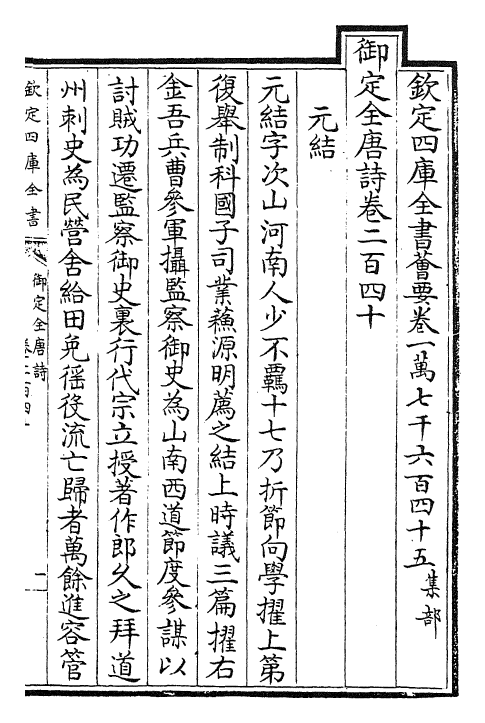 欽定四庫全書薈要卷一萬七千六百四十五集部
御定全唐詩卷二百四十
元結
元結字次山河南人少不羈十七乃折節向學擢上第
復舉制科國子司業蘓源明薦之結上時議三篇擢右
金吾兵曹參軍攝監察御史為山南西道節度參謀以
討賊功遷監察御史裏行代宗立授著作郎久之拜道
州刺史為民營舍給田免徭役流亡歸者萬餘進容管
欽定四庫全書
御定全唐詩
卷二百四十
一